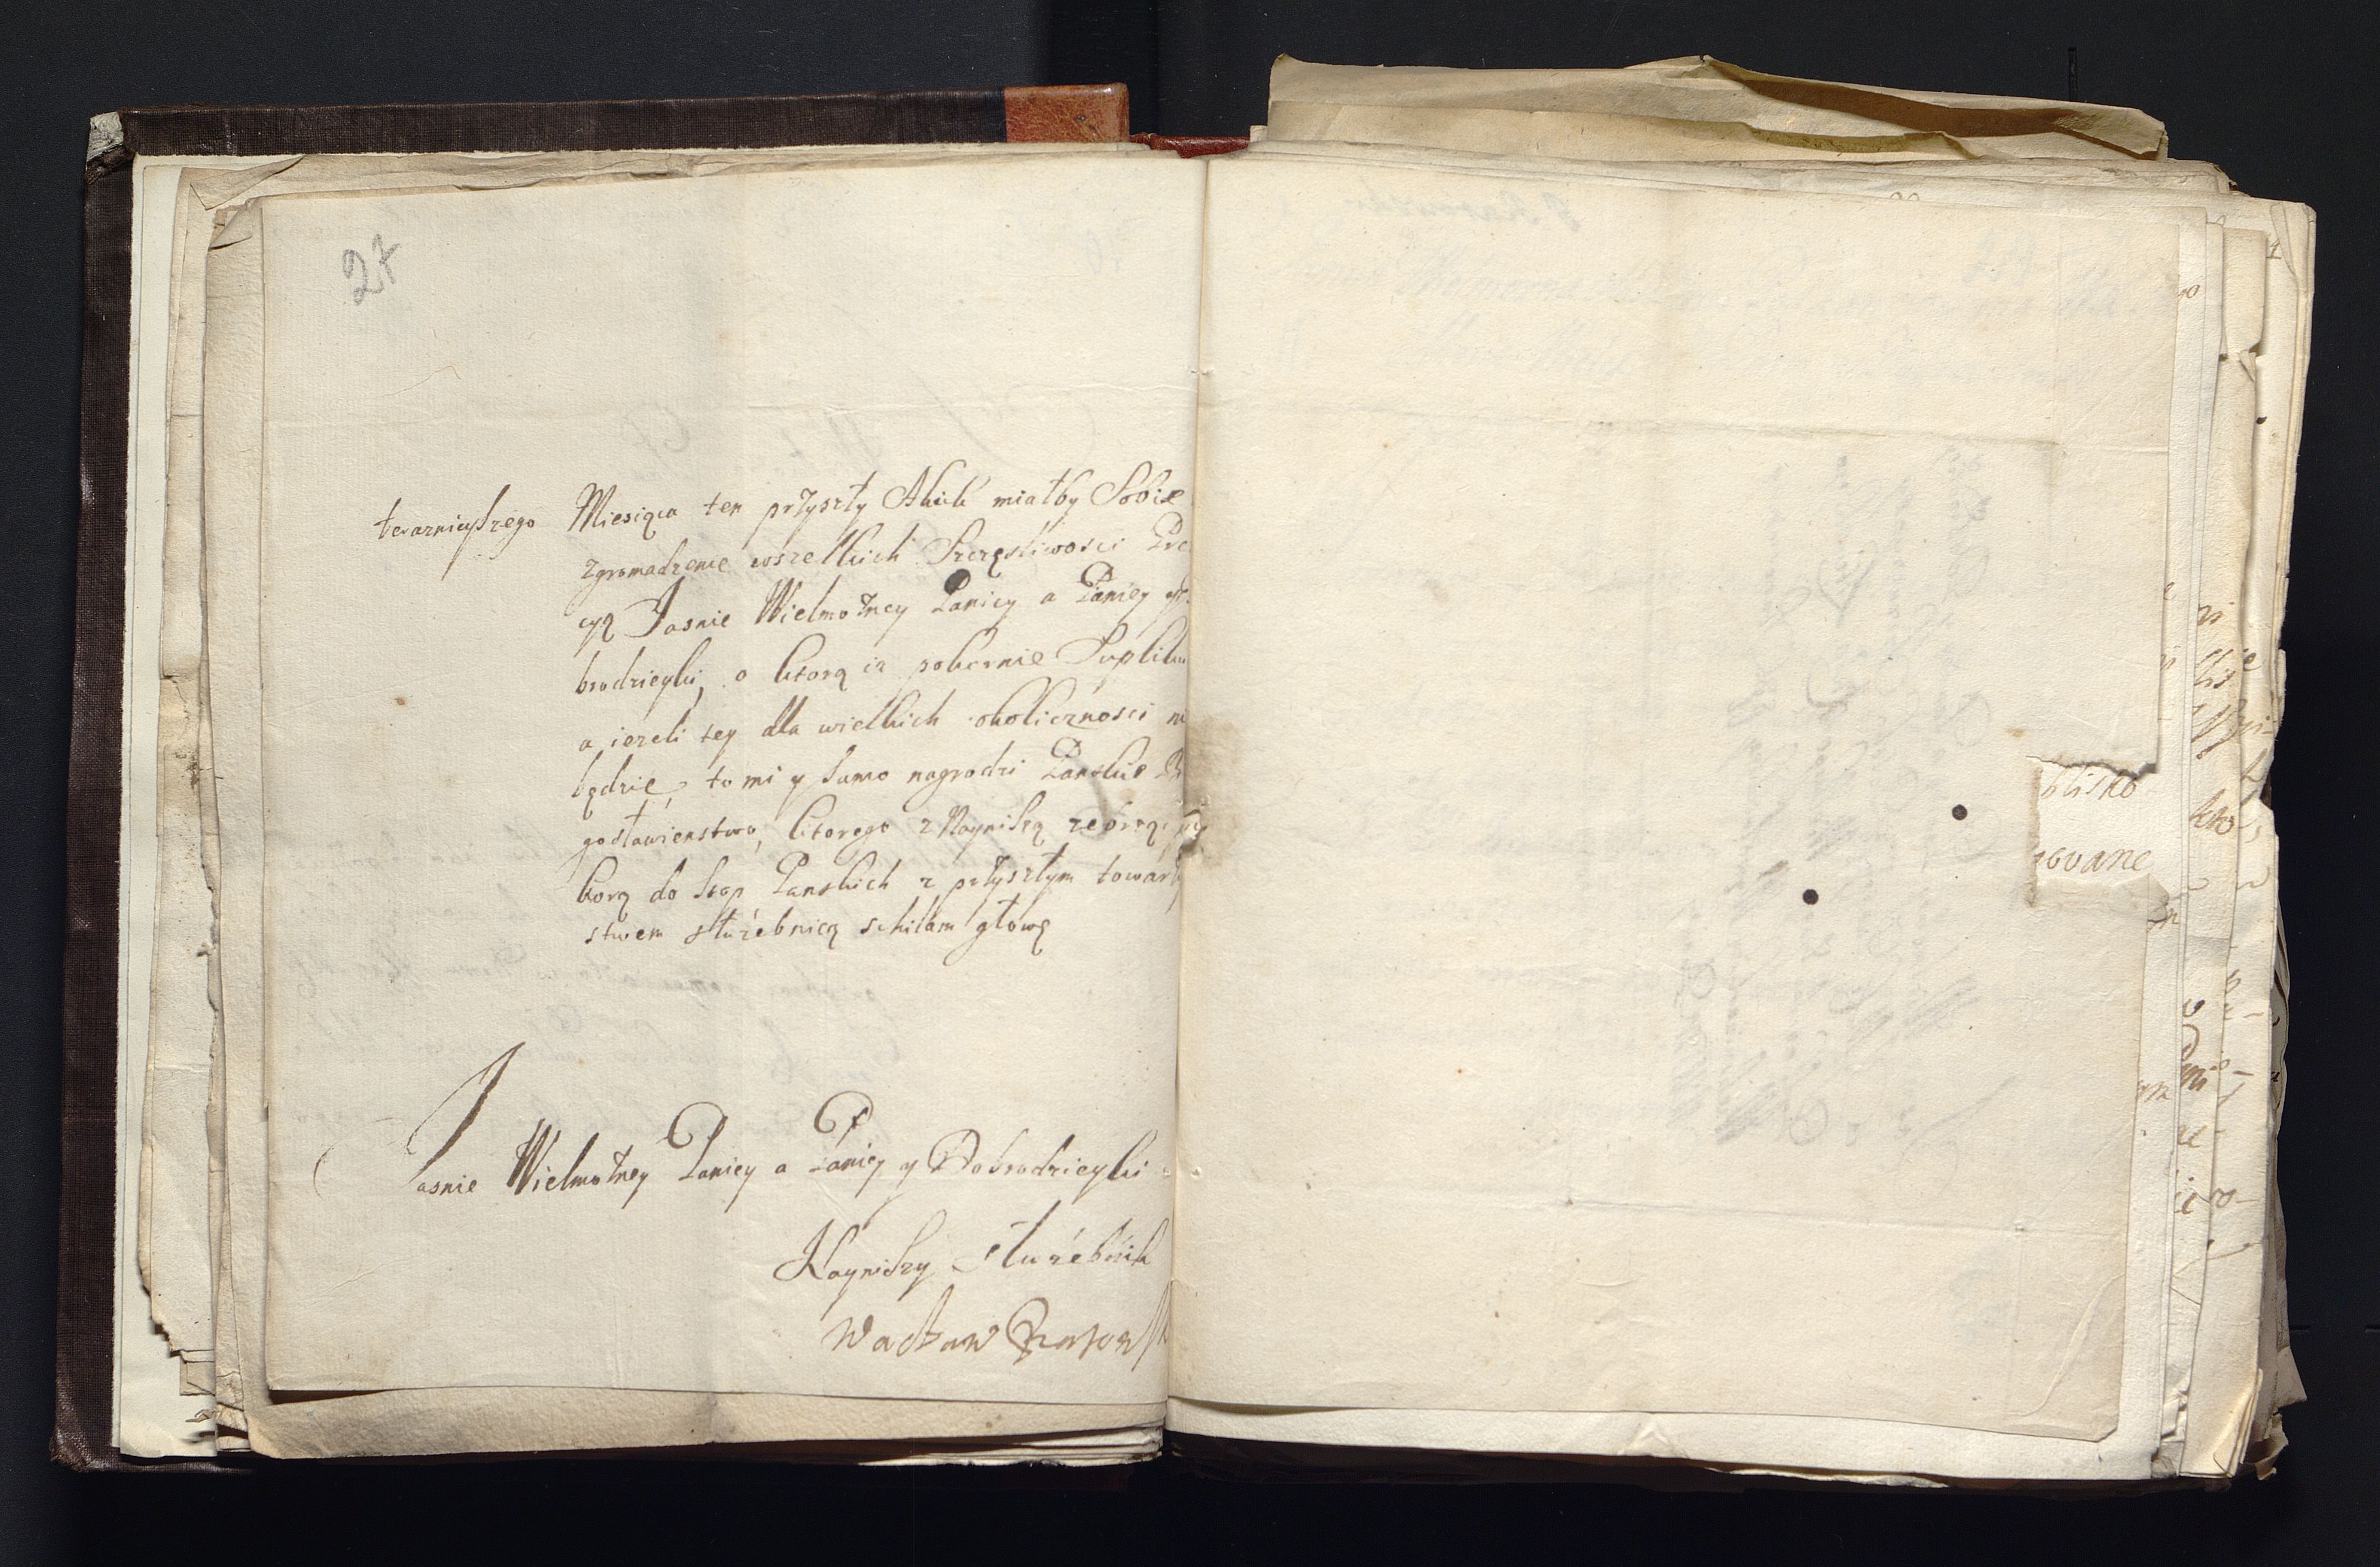 27
teraznieyszego Miesiąca ten przyszły Akt miałby Sobie
zgromadzenie wszelkich Szczęsliwosci Pre
cyą Jasnie Wielmożney Paniey a Paniey y
brodzieyki, o ktorą ia pokornie Supliku
a ieżeli tey dla wielkich okolicznosci ni
będzie, to mi y samo nagrodzi Panskie B
gosławienstwo, ktorego z Nayniszą żebrząc po
korą do stop Panskich z przyszłym towarzy
stwem służebnicą schilam głowę
Jasnie Wielmożney Paniey a Paniey y Dobrodzieyki
Nayniszy Służebnik
Wacław
blisko
owane